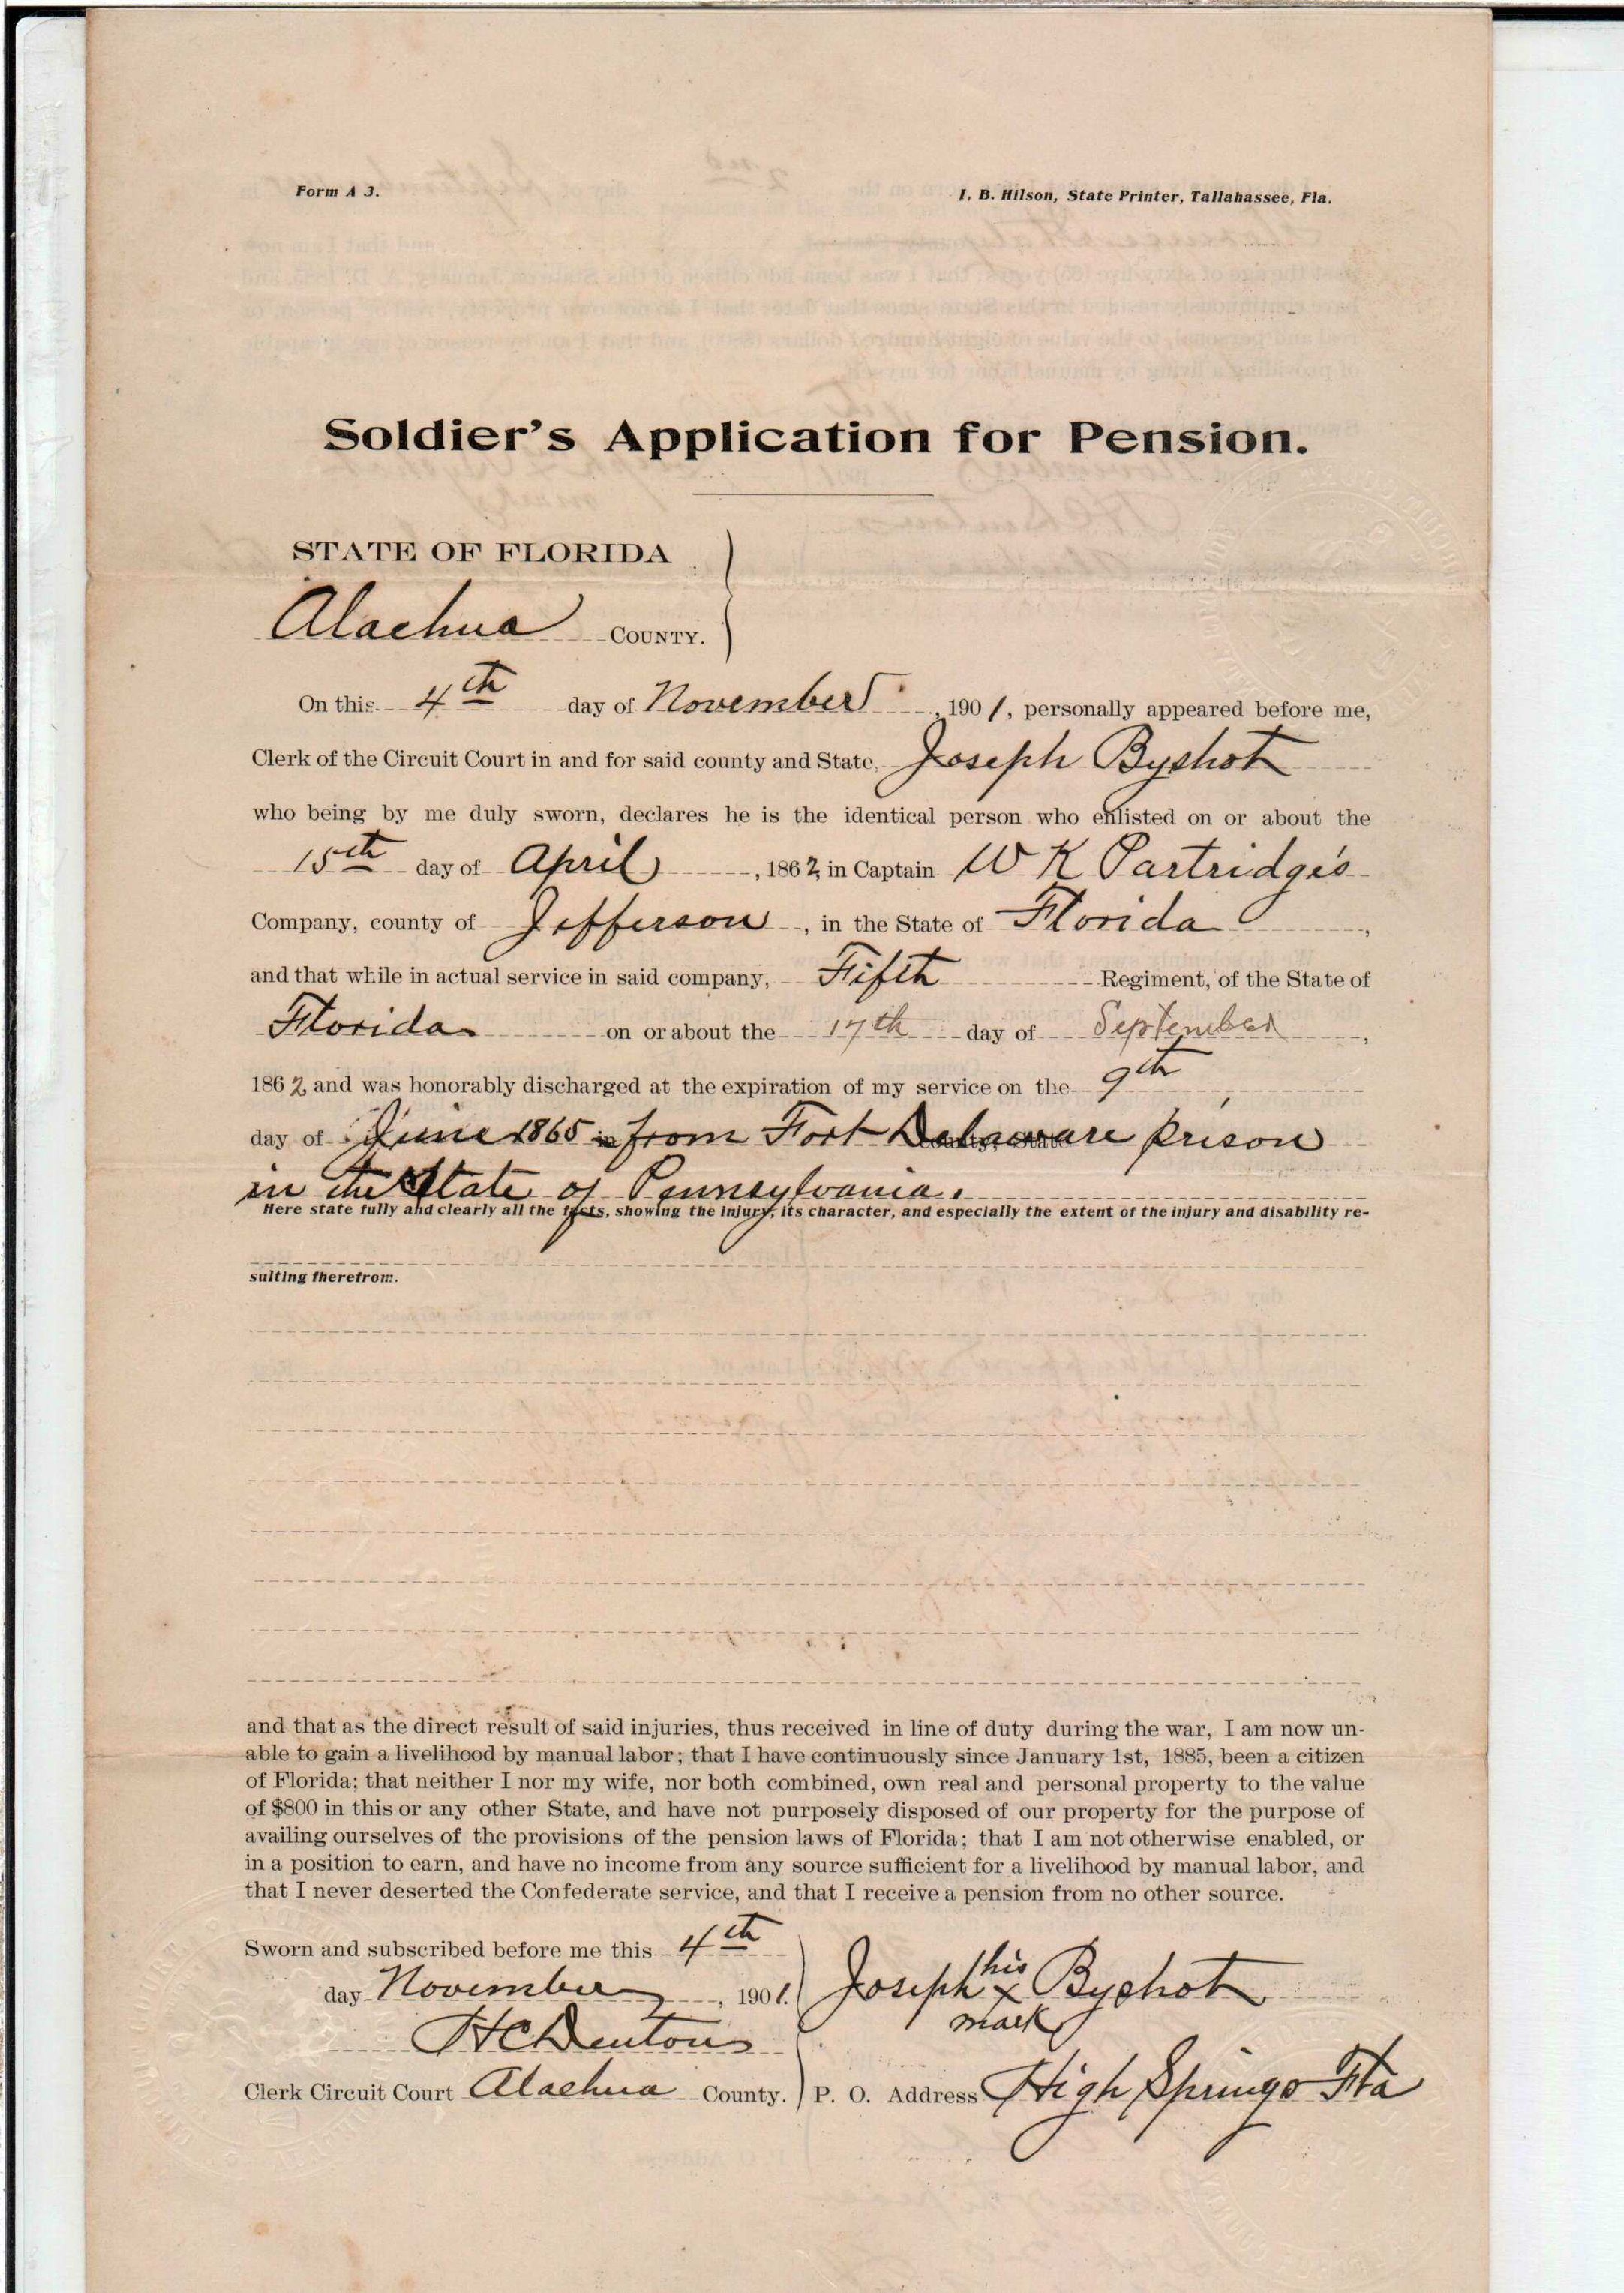 Form A 3.
I. B. Hilson, State Printer, Tallahassee, Fla.
Soldier's Application for Pension.
STATE OF FLORIDA
Alachua COUNTY.
On this 4th day of November, 1901, personally appeared before me,
Clerk of the Circuit Court in and for said county and State, Joseph Byshot
who being by me duly sworn, declares he is the identical person who enlisted on or about the
15th day of April, 1862, in Captain W K Partridge's
Company, county of Jefferson, in the State of Florida,
and that while in actual service in said company, Fifth Regiment, of the State of
Florida on or about the 17th day of September,
1862, and was honorably discharged at the expiration of my service on the 9th
day of June 1865 from Fort Delaware prison
in the State of Pennsylvania.
Here state fully and clearly all the facts, showing the injury, its character, and especially the extent of the injury and disability re-
sulting therefrom.
and that as the direct result of said injuries, thus received in line of duty during the war, I am now un-
able to gain a livelihood by manual labor; that I have continuously since January 1st, 1885, been a citizen
of Florida; that neither I nor my wife, nor both combined, own real and personal property to the value
of $800 in this or any other State, and have not purposely disposed of our property for the purpose of
availing ourselves of the provisions of the pension laws of Florida; that I am not otherwise enabled, or
in a position to earn, and have no income from any source sufficient for a livelihood by manual labor, and
that I never deserted the Confederate service, and that I receive a pension from no other source.
Sworn and subscribed before me this 4th
day November, 1901.
H C Denton
Clerk Circuit Court Alachua County.
Joseph his x mark Byshot
P. O. Address High Springs Fla